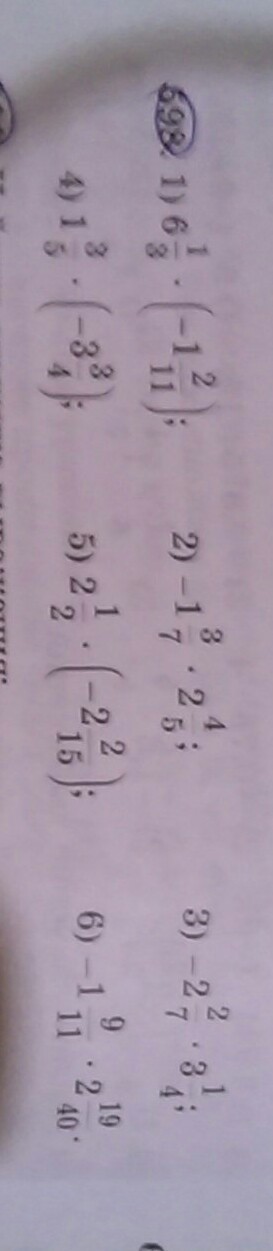 598. 1) 6 1/3 · (−1 2/11); 2) −1 3/7 · 2 4/5; 3) −2 2/7 · 3 1/4;
4) 1 3/5 · (−3 3/4); 5) 2 1/2 · (−2 2/15); 6) −1 9/11 · 2 19/40.